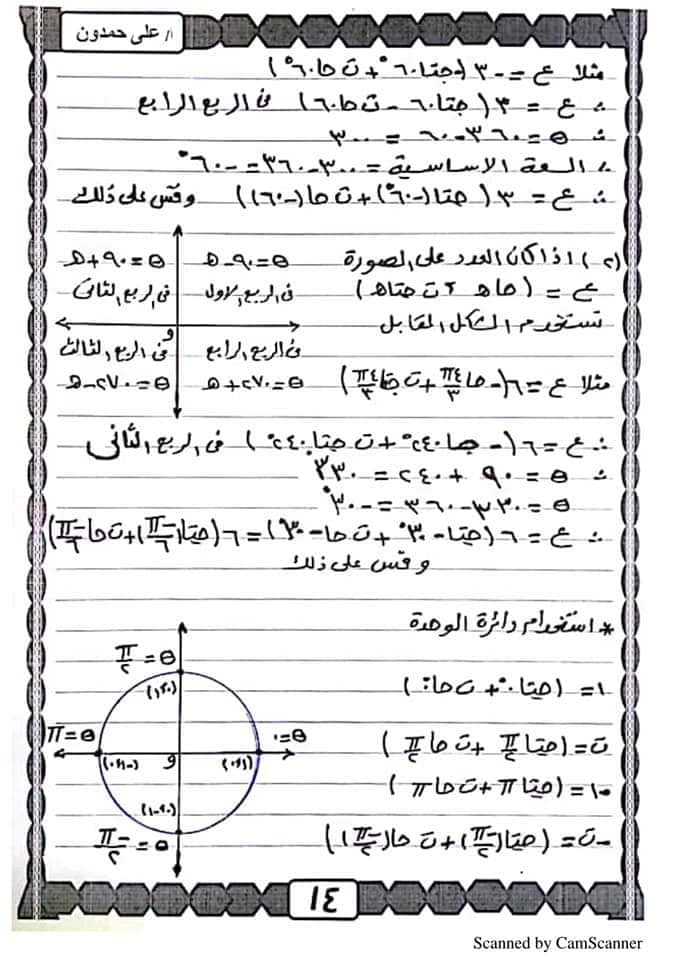 أ/ على حمدون
مثلا ع = -٣ (-جتا٦٠° + ت حا٦٠°)
∴ ع = ٣ (جتا٦٠ - ت حا٦٠) فى الربع الرابع
∴ θ = ٣٦٠ - ٦٠ = ٣٠٠
∴ السعة الاساسية = ٣٠٠ - ٣٦٠ = -٦٠°
∴ ع = ٣ (حتا(-٦٠°) + ت حا(-٦٠)) وقس على ذلك
(٢) اذا كان العدد على الصورة
ع = (حاه ± ت حتاه)
تستخدم الشكل المقابل
θ = ٩٠ - ه
فى الربع الاول
θ = ٩٠ + ه
فى الربع الثانى
و
فى الربع الرابع
θ = ٢٧٠ + ه
فى الربع الثالث
θ = ٢٧٠ - ه
مثلا ع = ٦(-حا ٤π/٣ + ت جتا ٤π/٣)
∴ ع = ٦(-جا٢٤٠° + ت حتا٢٤٠°) فى الربع الثانى
∴ θ = ٩٠ + ٢٤٠ = ٣٣٠
θ = ٣٣٠ - ٣٦٠ = -٣٠°
∴ ع = ٦ (حتا-٣٠° + ت حا-٣٠) = ٦ (حتا(-π/٦) + ت حا(-π/٦))
وقس على ذلك
* استخدام دائرة الوحدة
١ = (حتا٠° + ت حا٠°)
ت = (حتا π/٢ + ت حا π/٢)
-١ = (حتا π + ت حا π)
-ت = (حتا(-π/٢) + ت حا(-π/٢))
θ = π/٢
(١،٠)
θ = π
(٠،١-)
و
(٠،١)
θ = ٠
(١-،٠)
θ = -π/٢
١٤
Scanned by CamScanner